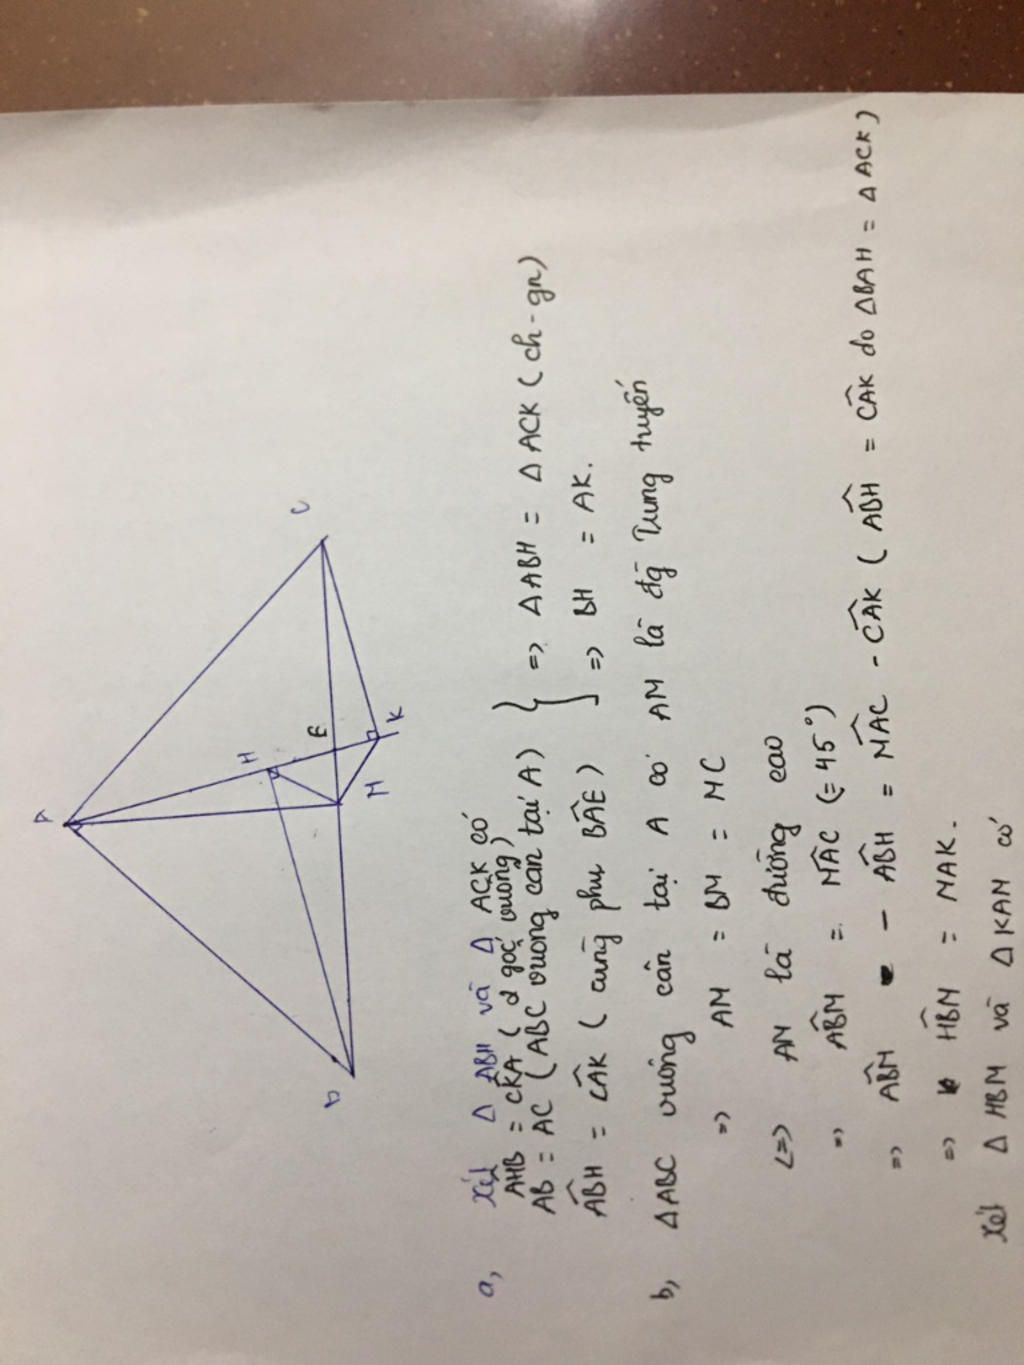 A
H
E
B
M
K
C
a, Xét Δ ABH và Δ ACK có
AHB = CKA ( 2 góc vuông)
AB = AC ( ABC vuông cân tại A)
ABH = CAK ( cùng phụ BAE)
=> Δ ABH = Δ ACK ( ch - gn)
=> BH = AK.
b, ΔABC vuông cân tại A có AM là đg trung tuyến
=> AM = BM = MC
<=> AM là đường cao
=> ABM = MAC (= 45°)
=> ABM - ABH = MAC - CAK ( ABH = CAK do ΔBAH = Δ ACK)
=> HBM = MAK.
Xét Δ HBM và Δ KAM có